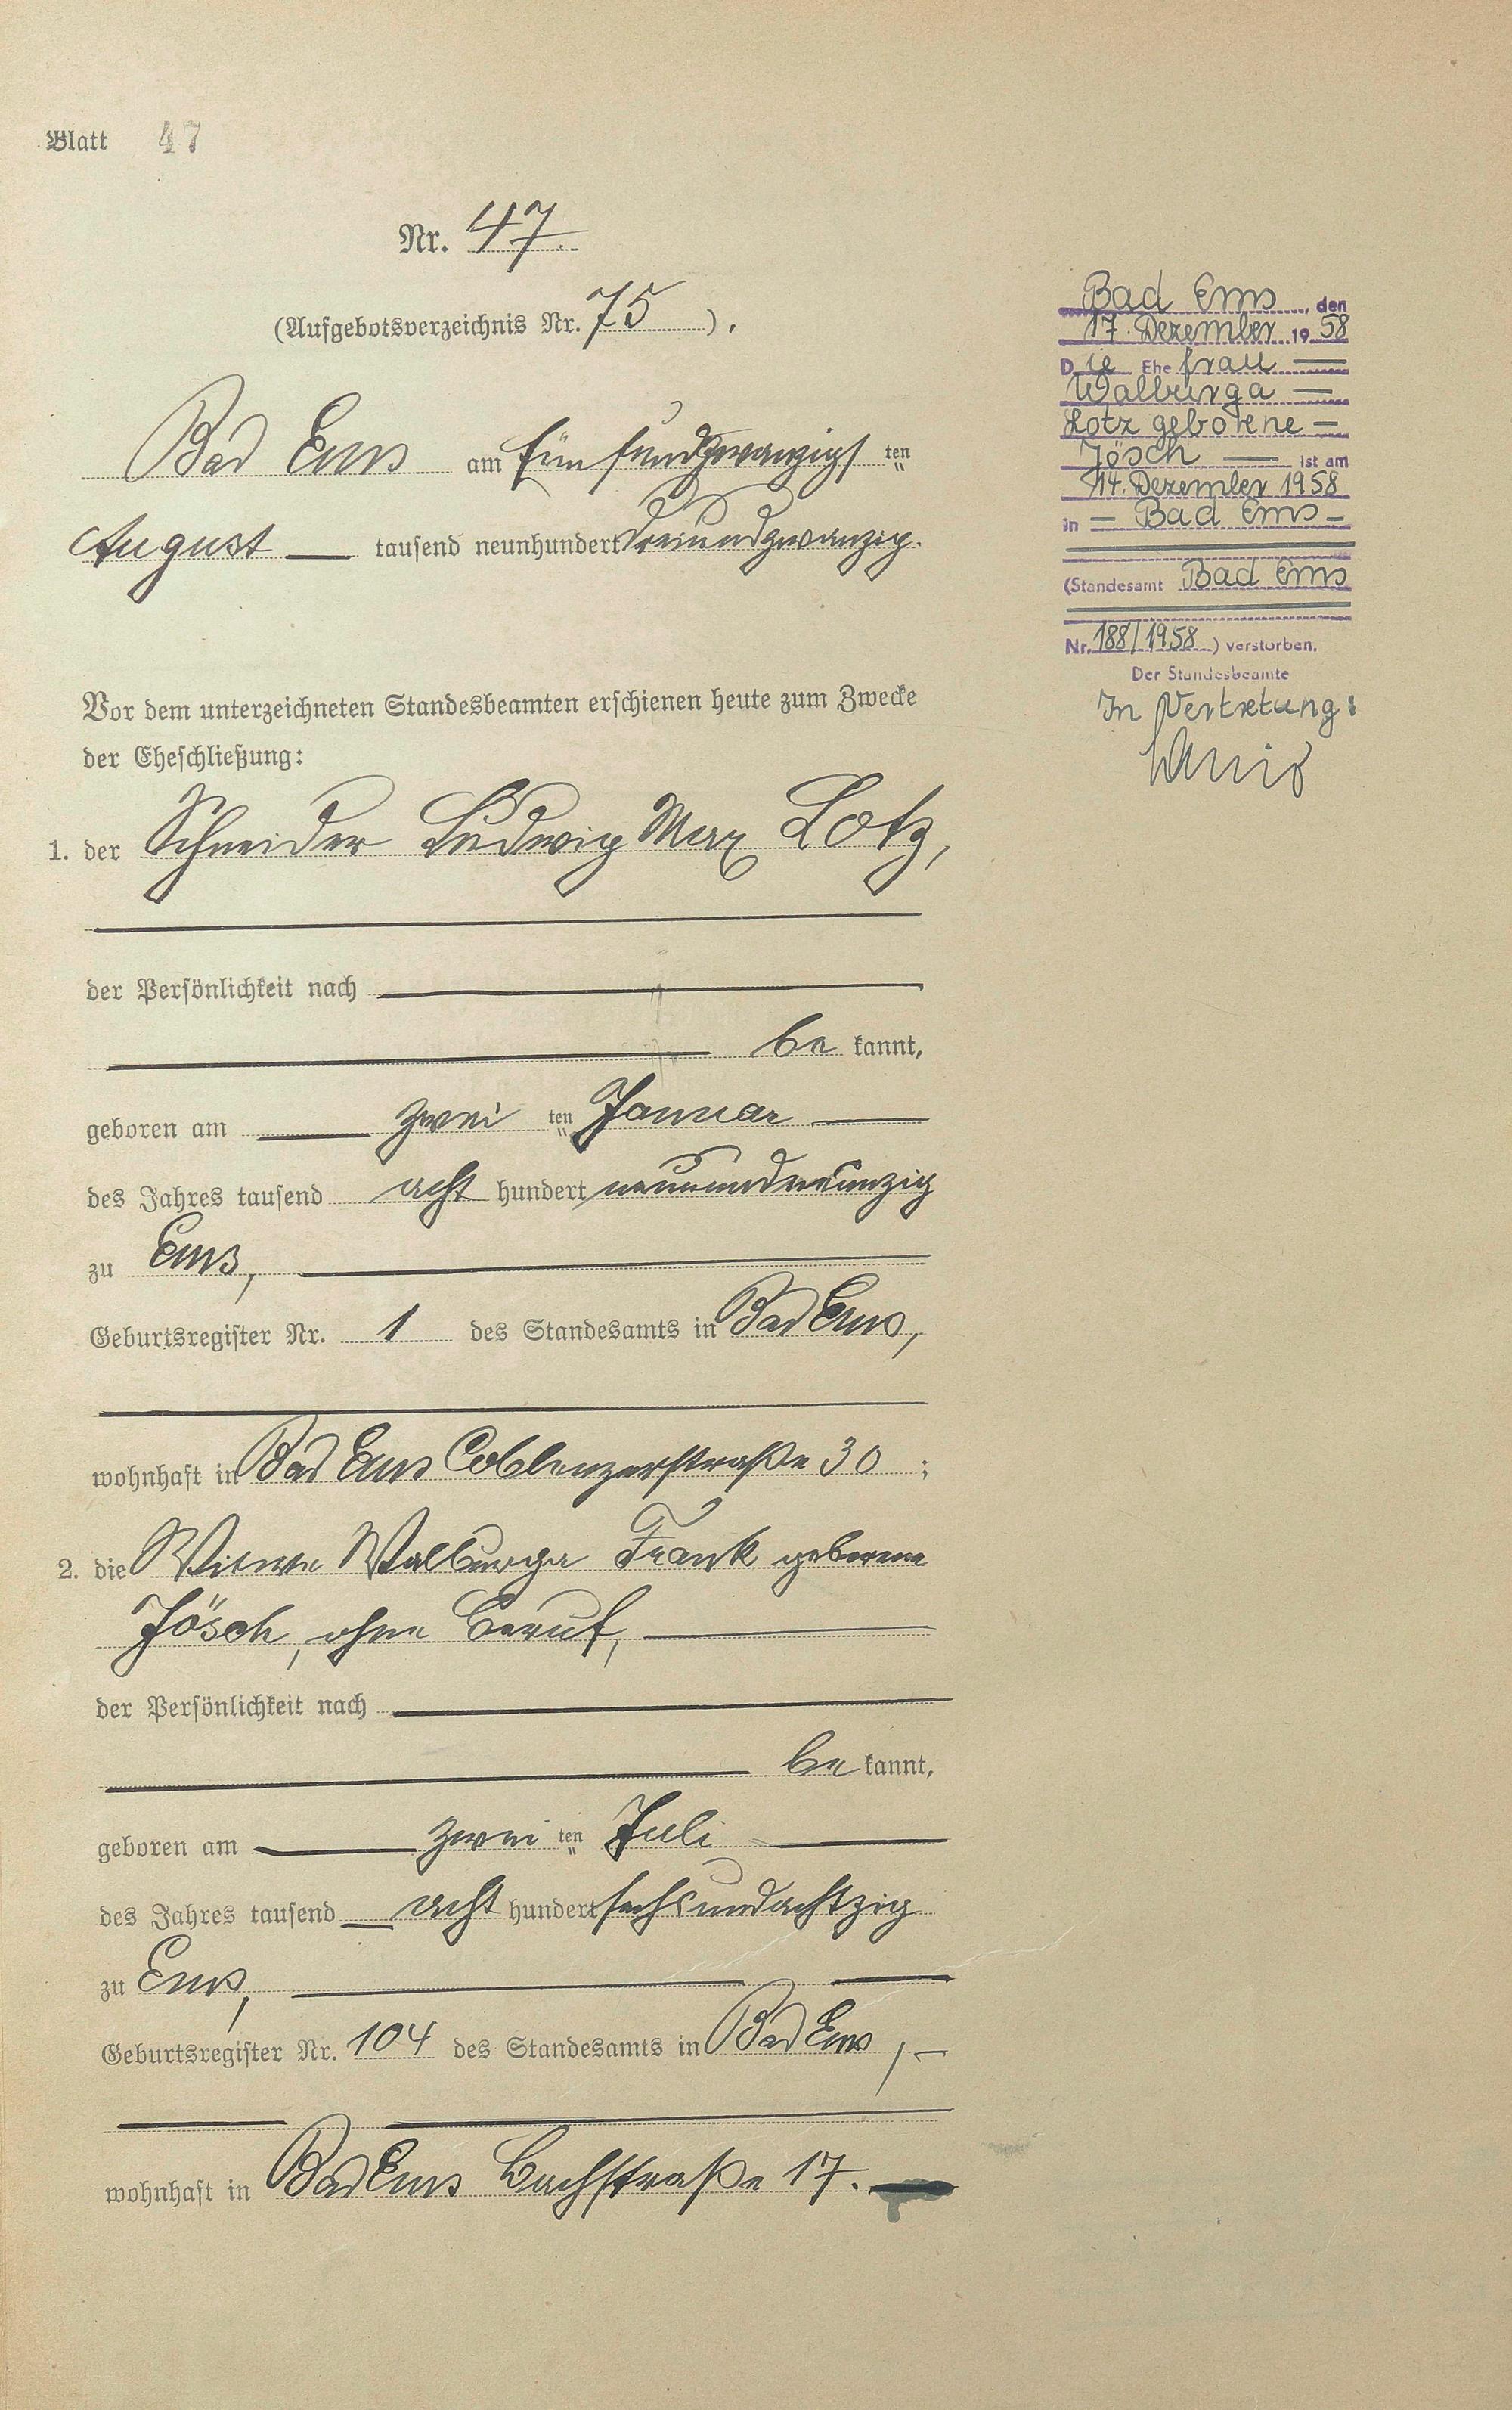 Blatt 47
Nr. 47.
(Aufgebotsverzeichnis Nr. 75).
Bad Ems am Fünfundzwanzigsten
August — tausend neunhundert dreiundzwanzig.
Vor dem unterzeichneten Standesbeamten erschienen heute zum Zwecke
der Eheschließung:
1. der Schneider Ludwig Max Lotz,
der Persönlichkeit nach
be kannt,
geboren am zwei ten Januar
des Jahres tausend acht hundert neunundneunzig
zu Ems,
Geburtsregister Nr. 1 des Standesamts in Bad Ems,
wohnhaft in Bad Ems Coblenzerstraße 30;
2. die Witwe Walburga Frank geborene
Jösch, ohne Beruf,
der Persönlichkeit nach
be kannt,
geboren am zwei ten Juli
des Jahres tausend acht hundert sechsundachtzig
zu Ems,
Geburtsregister Nr. 104 des Standesamts in Bad Ems, —
wohnhaft in Bad Ems Bachstraße 17.
Bad Ems, den
17. Dezember 1958
Die Ehefrau —
Walburga —
Lotz geborene —
Jösch — ist am
14. Dezember 1958
in — Bad Ems —
(Standesamt Bad Ems
Nr. 188/1958) verstorben.
Der Standesbeamte
In Vertretung: